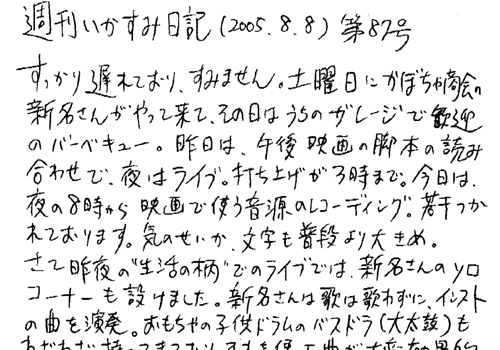 週刊いかすみ日記(2005.8.8)第87号
すっかり遅れており、すみません。土曜日にかぼちゃ商会の
新名さんがやって来て、その日はうちのガレージで歓迎
のバーベキュー。昨日は、午後映画の脚本の読み
合わせで、夜はライブ。打ち上げが3時まで。今日は、
夜の8時から映画で使う音源のレコーディング。若干つか
れております。気のせいか、文字も普段より大きめ。
さて昨夜の"生活の柄"でのライブでは、新名さんのソロ
コーナーも設けました。新名さんは歌は歌わずに、インスト
の曲を演奏。おもちゃの子供ドラムのバスドラ(大太鼓)も